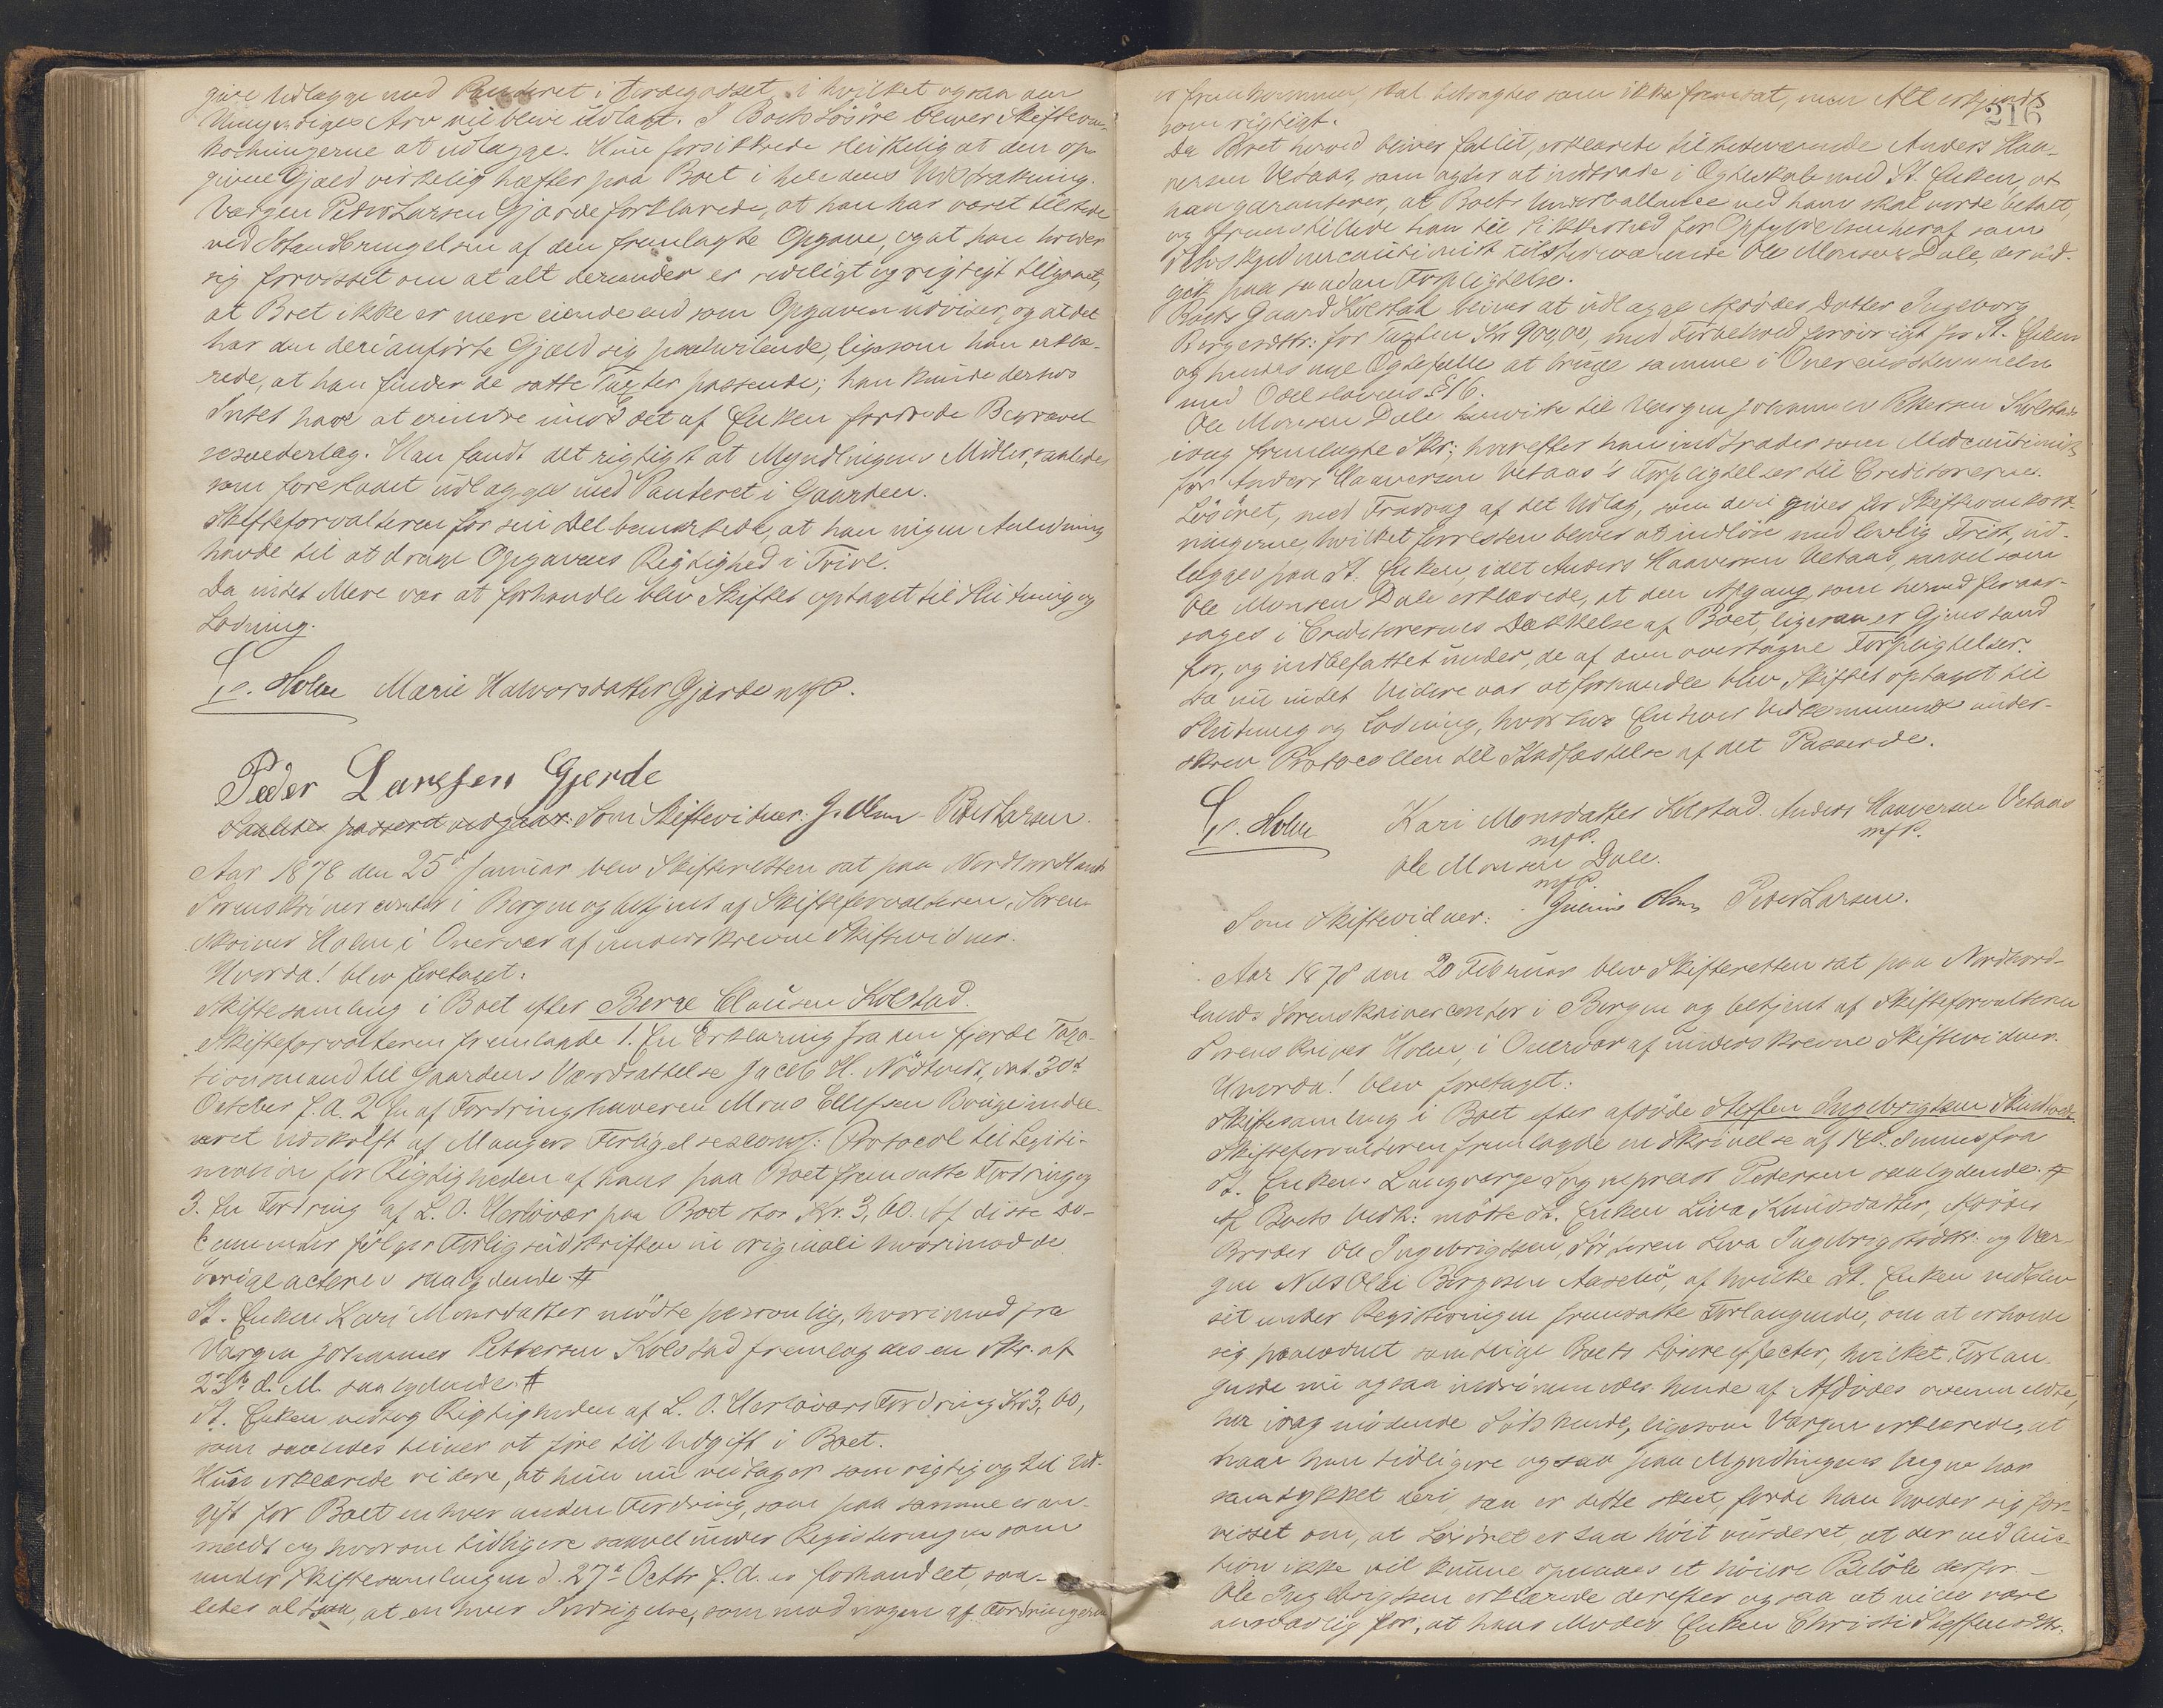 give Udlægge med Panderet i Jordegodset, i hvilket ogsaa den
Umyndiges Arv vil blive udlagt. I Boets Løsøre bliver Skifteom-
kostningerne at udlægge. Hun forsikkrede sluttelig at den op-
givne Gjæld virkelig hæfter paa Boet i hele dens Udstrækning.
Værgen Peder Larsen Gjærde forklarede, at han har været tilstede
ved Istandbringelsen af den fremlagte Opgave, og at han holder
sig forvisset om at alt derunder er redeligt og rigtigt tilgaaet,
at Boet ikke er mere eiende end som Opgaven udviser, og at det
har den deri anførte Gjæld sig paahvilende, ligesom han erklæ-
rede, at han finder de satte Taxter passende; han kunde derhos
Intet have at erindre imod det af Enken fordrede Begravel-
sesvederlag. Han fandt det rigtigt at Myndlingens Midler, saaledes
som foreslaaet udlægges med Panteret i Gaarden.
Skifteforvalteren for sin Del bemærkede, at han ingen Anledning
havde til at drage Opgavens Rigtighed i Tvivl.
Da intet Mere var at forhandle blev Skiftet optaget til Slutning og
Lodning.
Holm Marie Halvorsdatter Gjærde mfP.
Peder Larssen Gjerde
Saaledes passeret vedgaar: Som Skiftevidner: G. Olsen Peter Larsen.
Aar 1878 den 25d Januar blev Skifteretten sat paa Nordhordlands
Sorenskrivercontor i Bergen og betjent af Skifteforvalteren, Soren-
skriver Holm i Overvær af underskrevne Skiftevidner.
Hvorda! blev foretaget:
Skiftesamling i Boet efter Berge Clausen Kolstad.
Skifteforvalteren fremlagde 1. En Erklæring fra den fjerde Taxa-
tionsmand til Gaardens Værdsættelse Jacob H. Nødtvedt, dat. 30d
October f. A. 2 En af Fordringshaveren Mons Ellefsen Bouge indle-
veret Udskrift af Mangers Forligelsescomms: Protocol til Legiti-
mation for Rigtigheden af hans paa Boet fremsatte Fordring og
3. En Fordring af L. O. Herløvær paa Boet stor Kr. 3,60. Af disse Do-
cumenter følger Forligsudskriften in originali hvorimod de
øvrige acteres saalydende #
St. Enken Kari Monsdatter mødte personlig, hvorimod fra
Værgen Johannes Pettersen Kolstad fremlagdes en Skr. af
23de d. M. saalydende #
St. Enken vedtog Rigtigheden af L. O. Herløværs Fordring Kr 3,60,
som saaledes bliver at føre til Udgift i Boet.
Hun erklærede videre, at hun nu vedtager som rigtig og til Ud-
gift for Boet enhver anden Fordring, som paa samme er an-
meldt og hvorom tidligere saavel under Registeringen som
under Skiftesamlingen d. 27d Octbr f. A. er forhandlet, saa-
ledes altsaa, at enhver Indsigelse, som mod nogen af Fordringerne
216
er fremkommen, skal betragtes som ikke fremsat, men Alt erkjendes
som rigtigt.
Da Boet herved bliver fallit, erklærede tilstedeværende Anders Haa-
versen Vetaas, som agter at indtræde i Ægteskab med St. Enken, at
han garanterer, at Boets Underballance ved ham skal vorde betalt,
og fremstillede han til Sikkerhed for Opfyldelsen heraf som
Selvskyldnercautionist tilstedeværende Ole Monsen Dale, der ind-
gik paa saadan Forpligtelse.
Boets Gaard Kolstad bliver at udlægge Afdødes Datter Ingeborg
Bergesdtr: for Taxten Kr 900,00, med Forbehold forøvrigt for St. Enken
og hendes nye Ægtefælle at bruge samme i Overensstemmelse
med Odelslovens § 16.
Ole Monsen Dale henviste til Værgen Johannes Pettersen Kolstads
idag fremlagte Skr:, hvorefter han indtræder som Medcautionist
for Anders Haaversen Vetaas's Forpligtelser til Creditorerne.
Løsøret, med Fradrag af det Udlag, som deri gives for Skifteomkost-
ningerne, hvilket forresten bliver at indløse med lovlig Frist, ud-
lægges paa St. Enken, idet Anders Haaversen Vetaas, saavel som
Ole Monsen Dale erklærede, at den Afgang, som herved foraar-
sages i Creditorernes Dækkelse af Boet, ligesaa er Gjenstand
for, og indbefattet under, de af dem overtagne Forpligtelser.
Da nu intet Videre var at forhandle blev Skiftet optaget til
Slutning og Lodning, hvorhos Enhver Vedkommende under-
skrev Protocollen til Stadfæstelse af det Passerede.
Holm Kari Monsdatter Kolstad. Anders Haaversen Vetaas
mfP. mfP.
Ole Monsen Dale.
mfP.
Som Skiftevidner: Olsen Peter Larsen.
Aar 1878 den 20 Februar blev Skifteretten sat paa Nordhord-
lands Sorenskrivercontor i Bergen og betjent af Skifteforvalteren
Sorenskriver Holm, i Overvær af underskrevne Skiftevidner.
Hvorda! blev foretaget:
Skiftesamling i Boet efter afdøde Steffen Ingebrigtsen
Skifteforvalteren fremlagde en Skrivelse af 14d. dennes fra
St. Enkens Laugværge Sogneprest Petersen saalydende #
Af Boets Vedk: mødte St. Enken Liva Knudsdatter, Afdødes
Broder Ole Ingebrigtsen, Søsteren Liva Ingebrigtsdtr. og Vær-
gen Nils Olai Børgesen Aasebø, af hvilke St. Enken vedblev
sit under Registeringen fremsatte Forlangende, om at erholde
sig paalodnet samtlige Boets Løsøreeffecter, hvilket Forlan-
gende nu ogsaa indrømmedes hende af Afdødes ovenmeldte,
her idag mødende Sødskende, ligesom Værgen erklærede, at
naar han tidligere ogsaa paa Myndlingens Vegne har
samtykket deri, saa er dette skeet, fordi han holder sig for-
visset om, at Løsøret er saa høit vurderet, at der ved Auc-
tion ikke vil kunne opnaaes et høiere Beløb derfor. -
Ole Ingebrigtsen erklærede derefter ogsaa at ville være
ansvarlig for, at hans Moder Enken Christi Steffensdtr.